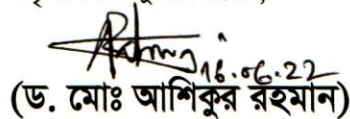 16.06.22
(ড. মোঃ আশিকুর রহমান)